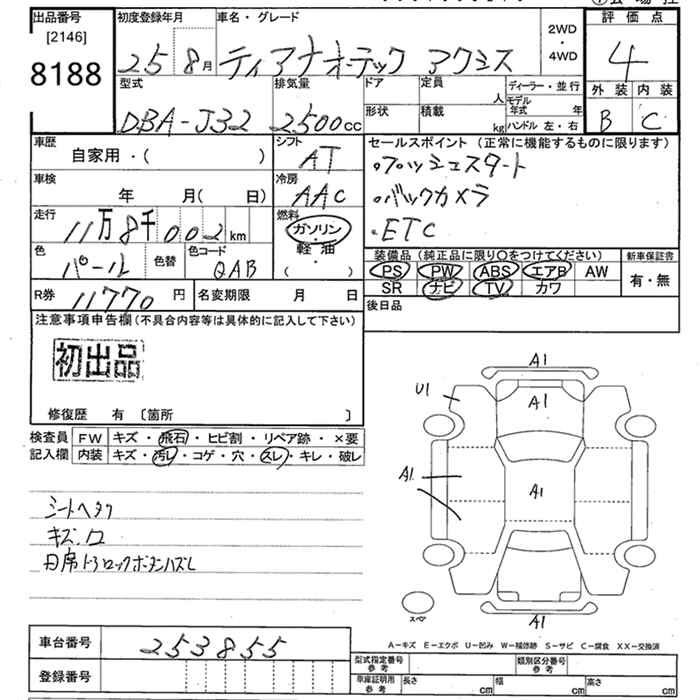 出品番号 初度登録年月 車名・グレード 評価点
[2146] 2WD
8188 25 8月 ティアナオーテック アクシス ・ 4
4WD
型式 排気量 ドア 定員 ディーラー・並行 外装 内装
人 モデル年式 年
DBA-J32 2500cc 形状 積載 kg ハンドル 左・右 B C
車歴 シフト セールスポイント(正常に機能するものに限ります)
自家用・( ) AT ・プッシュスタート
車検 冷房
年 月( 日) AAC ・バックカメラ
走行 燃料
11万8千002km ガソリン ・ETC
軽・油
色 色替 色コード 装備品(純正品に限り○をつけてください) 新車保証書
パール QAB ( ・ ) PS PW ABS エアB AW 有・無
R券 11770円 名変期限 月 日 SR ナビ TV カワ
注意事項申告欄(不具合内容等は具体的に記入して下さい) 後日品
初出品
修復歴 有 〔箇所 〕
検査員 FW キズ・飛石・ヒビ割・リペア跡・×要
記入欄 内装 キズ・汚レ・コゲ・穴・スレ・キレ・破レ
A1
U1
A1
A1
A1
シートヘタク
キズ.
席 ロックボタンハズレ
スペア
A1
A-キズ E-エクボ U-凹み W-補修跡 S-サビ C-腐食 XX-交換済
車台番号 253855
型式指定番号 参考 類別区分番号 参考
登録番号 車庫証明用 参考 長さ cm 幅 cm 高さ cm